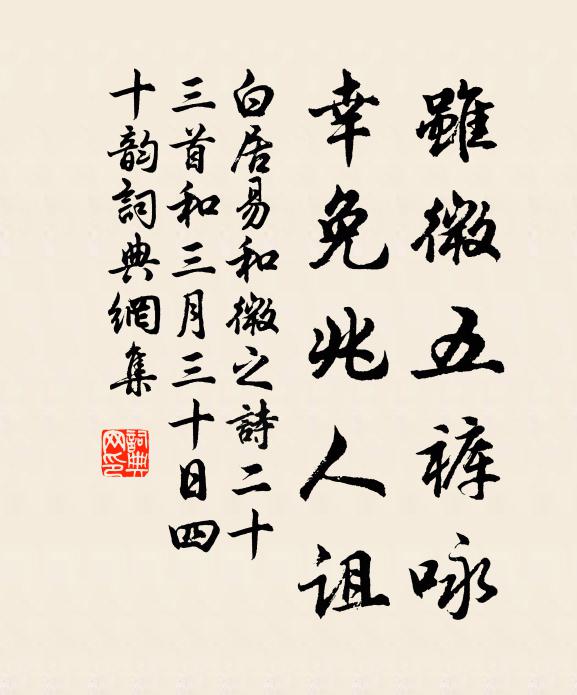 雖微五褲咏
幸免兆人詛
白居易和微之詩二十
三首和三月三十日四
十韵詞典網集
詞典网印